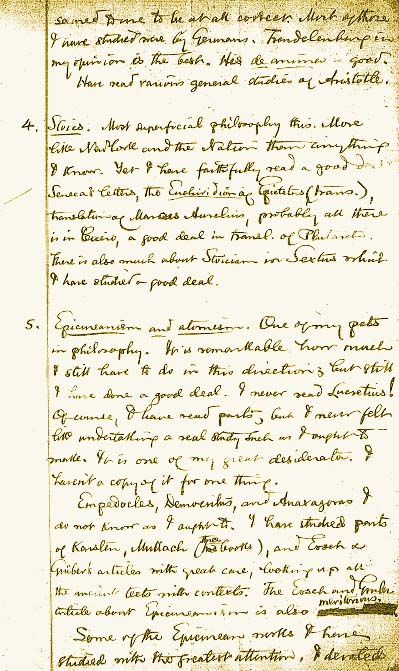 to be at all correct. Most of those
I have studied were by Germans. Trendelenburg in
my opinion is the best. His de anima is good.
Have read various general studies of Aristotle.
4. Stoics. Most superficial philosophy this. More
like New York and the Nation than anything
I know. Yet I have faithfully read a good
Seneca's letters, the Enchiridion of Epictetus (trans.),
translation of Marcus Aurelius, probably all there
is in Cicero, a good deal in transl. of Plutarch.
There is also much about Stoicism in Sextus which
I have studied a good deal.
5. Epicureanism and atomism. One of my pets
in philosophy. It is remarkable how much
I still have to do in this direction; but still
I have done a good deal. I never read Lucretius!
Of course, I have read parts, but I never felt
like undertaking a real study such as I ought to
make. It is one of my great desiderata. I
haven't a copy of it for one thing.
Empedocles, Democritus, and Anaxagoras I
do not know as I ought to. I have studied parts
of Karsten, Mullach (three books), and Ersch &
Gruber's articles with great care, looking up all
the ancient texts with contexts. The Ersch and Gruber
article about Epicureanism is also meritorious.
Some of the Epicurean works I have
studied with the greatest attention. I devoted